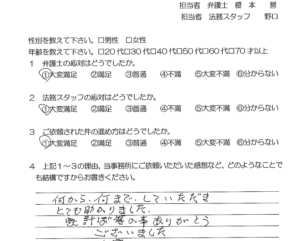 担当者　弁護士　榎本　誉
担当者　法務スタッフ　野口
性別を教えて下さい。□男性　□女性
年齢を教えて下さい。□20代□30代□40代□50代□60代□70才以上
1　弁護士の応対はどうでしたか。
①大変満足　②満足　③普通　④不満　⑤大変不満　⑥分からない
2　法務スタッフの応対はどうでしたか。
①大変満足　②満足　③普通　④不満　⑤大変不満　⑥分からない
3　ご依頼された件の進め方はどうでしたか。
①大変満足　②満足　③普通　④不満　⑤大変不満　⑥分からない
4　上記1～3の理由、当事務所にご依頼いただいた感想など、どのようなことで
も結構ですからお書きください。
何から、何まで、していただき
とても助かりました。
の事ありがとう
ございました